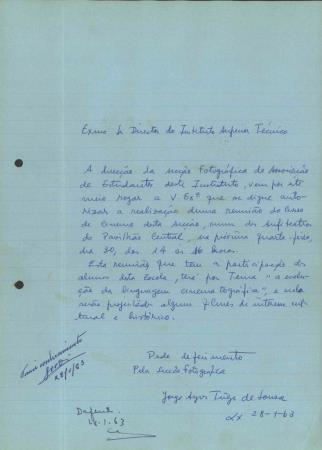 Exmo Sr Director do Instituto Superior Técnico
A direcção da secção Fotográfica da Associação
de Estudantes deste Instituto, vem por este
meio rogar a V. Exª que se digne auto-
rizar a realização duma reunião do curso
de cinema desta secção, num dos anfiteatros
do Pavilhão Central, na próxima quarta-feira
dia 30, das 14 às 16 horas.
Esta reunião, que tem a participação dos
alunos desta Escola, terá por Tema "a evolu-
ção da linguagem cinematográfica", e nela
serão projectados alguns filmes de interesse cul-
tural e histórico.
Pede deferimento
Pela Secção Fotográfica
Jorge
de Sousa
Lx 28-1-63
Tomei conhecimento
28/1/63
Deferido
28.1.63